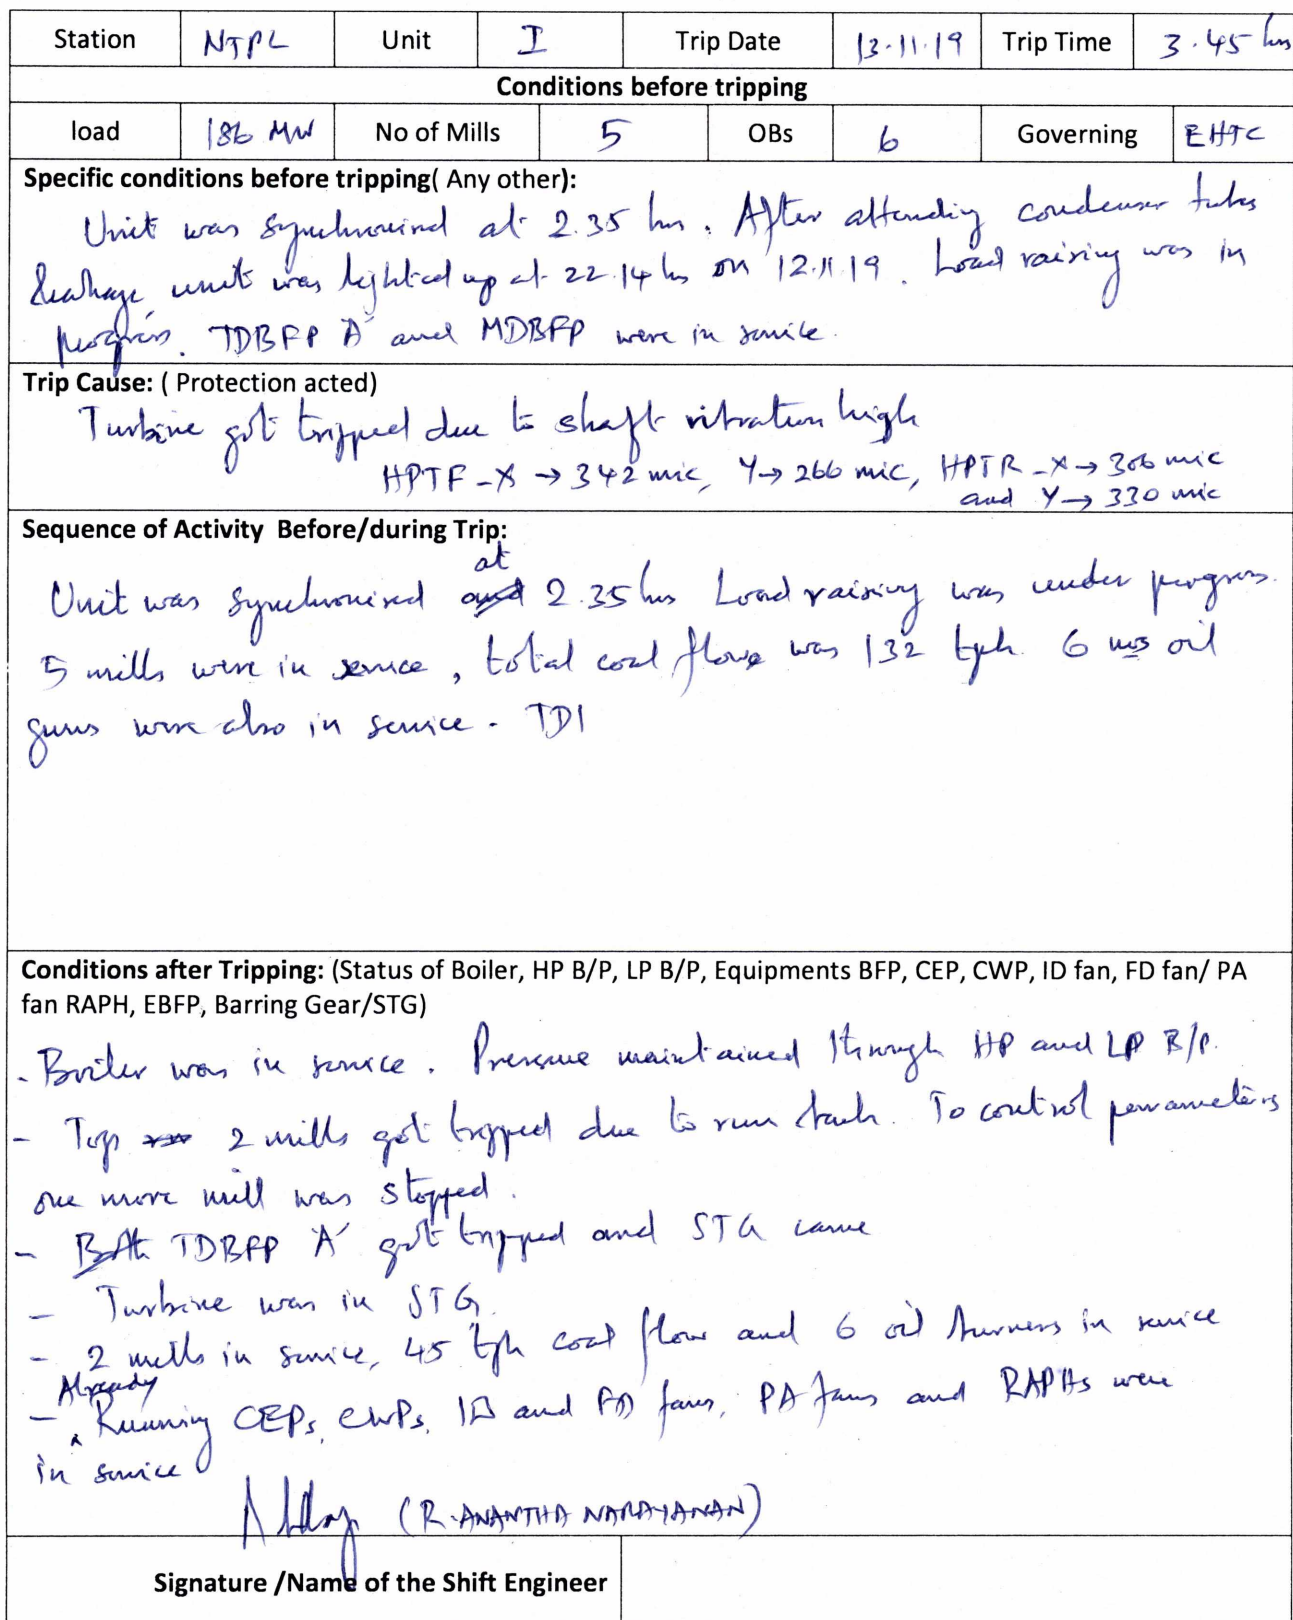 Station NTPL Unit I Trip Date 13.11.19 Trip Time 3.45 hrs
Conditions before tripping
load 186 MW No of Mills 5 OBs 6 Governing EHTC
Specific conditions before tripping( Any other):
Unit was synchronised at 2.35 hrs. After attending condenser tubes
leakage, unit was lighted up at 22.14 hrs on 12.11.19. Load raising was in
progress. TDBFP 'A' and MDBFP were in service.
Trip Cause: ( Protection acted)
Turbine got tripped due to shaft vibration high
HPTF -X → 342 mic, Y→ 266 mic, HPTR -X → 306 mic
and Y → 330 mic
Sequence of Activity Before/during Trip:
Unit was synchronised at 2.35 hrs Load raising was under progress.
5 mills were in service, total coal flow was 132 tph. 6 nos oil
guns were also in service. TD1
Conditions after Tripping: (Status of Boiler, HP B/P, LP B/P, Equipments BFP, CEP, CWP, ID fan, FD fan/ PA
fan RAPH, EBFP, Barring Gear/STG)
- Boiler was in service. Pressure maintained through HP and LP B/P.
- Top 2 mills got tripped due to run back. To control parameters
one more mill was stopped.
- TDBFP 'A' got tripped and STG came
- Turbine was in STG.
- 2 mills in service, 45 tph coal flow and 6 oil burners in service
- Already Running CEPs, CWPs, ID and FD fans, PA fans and RAPHs were
in service
(R. ANANTHA NARAYANAN)
Signature /Name of the Shift Engineer